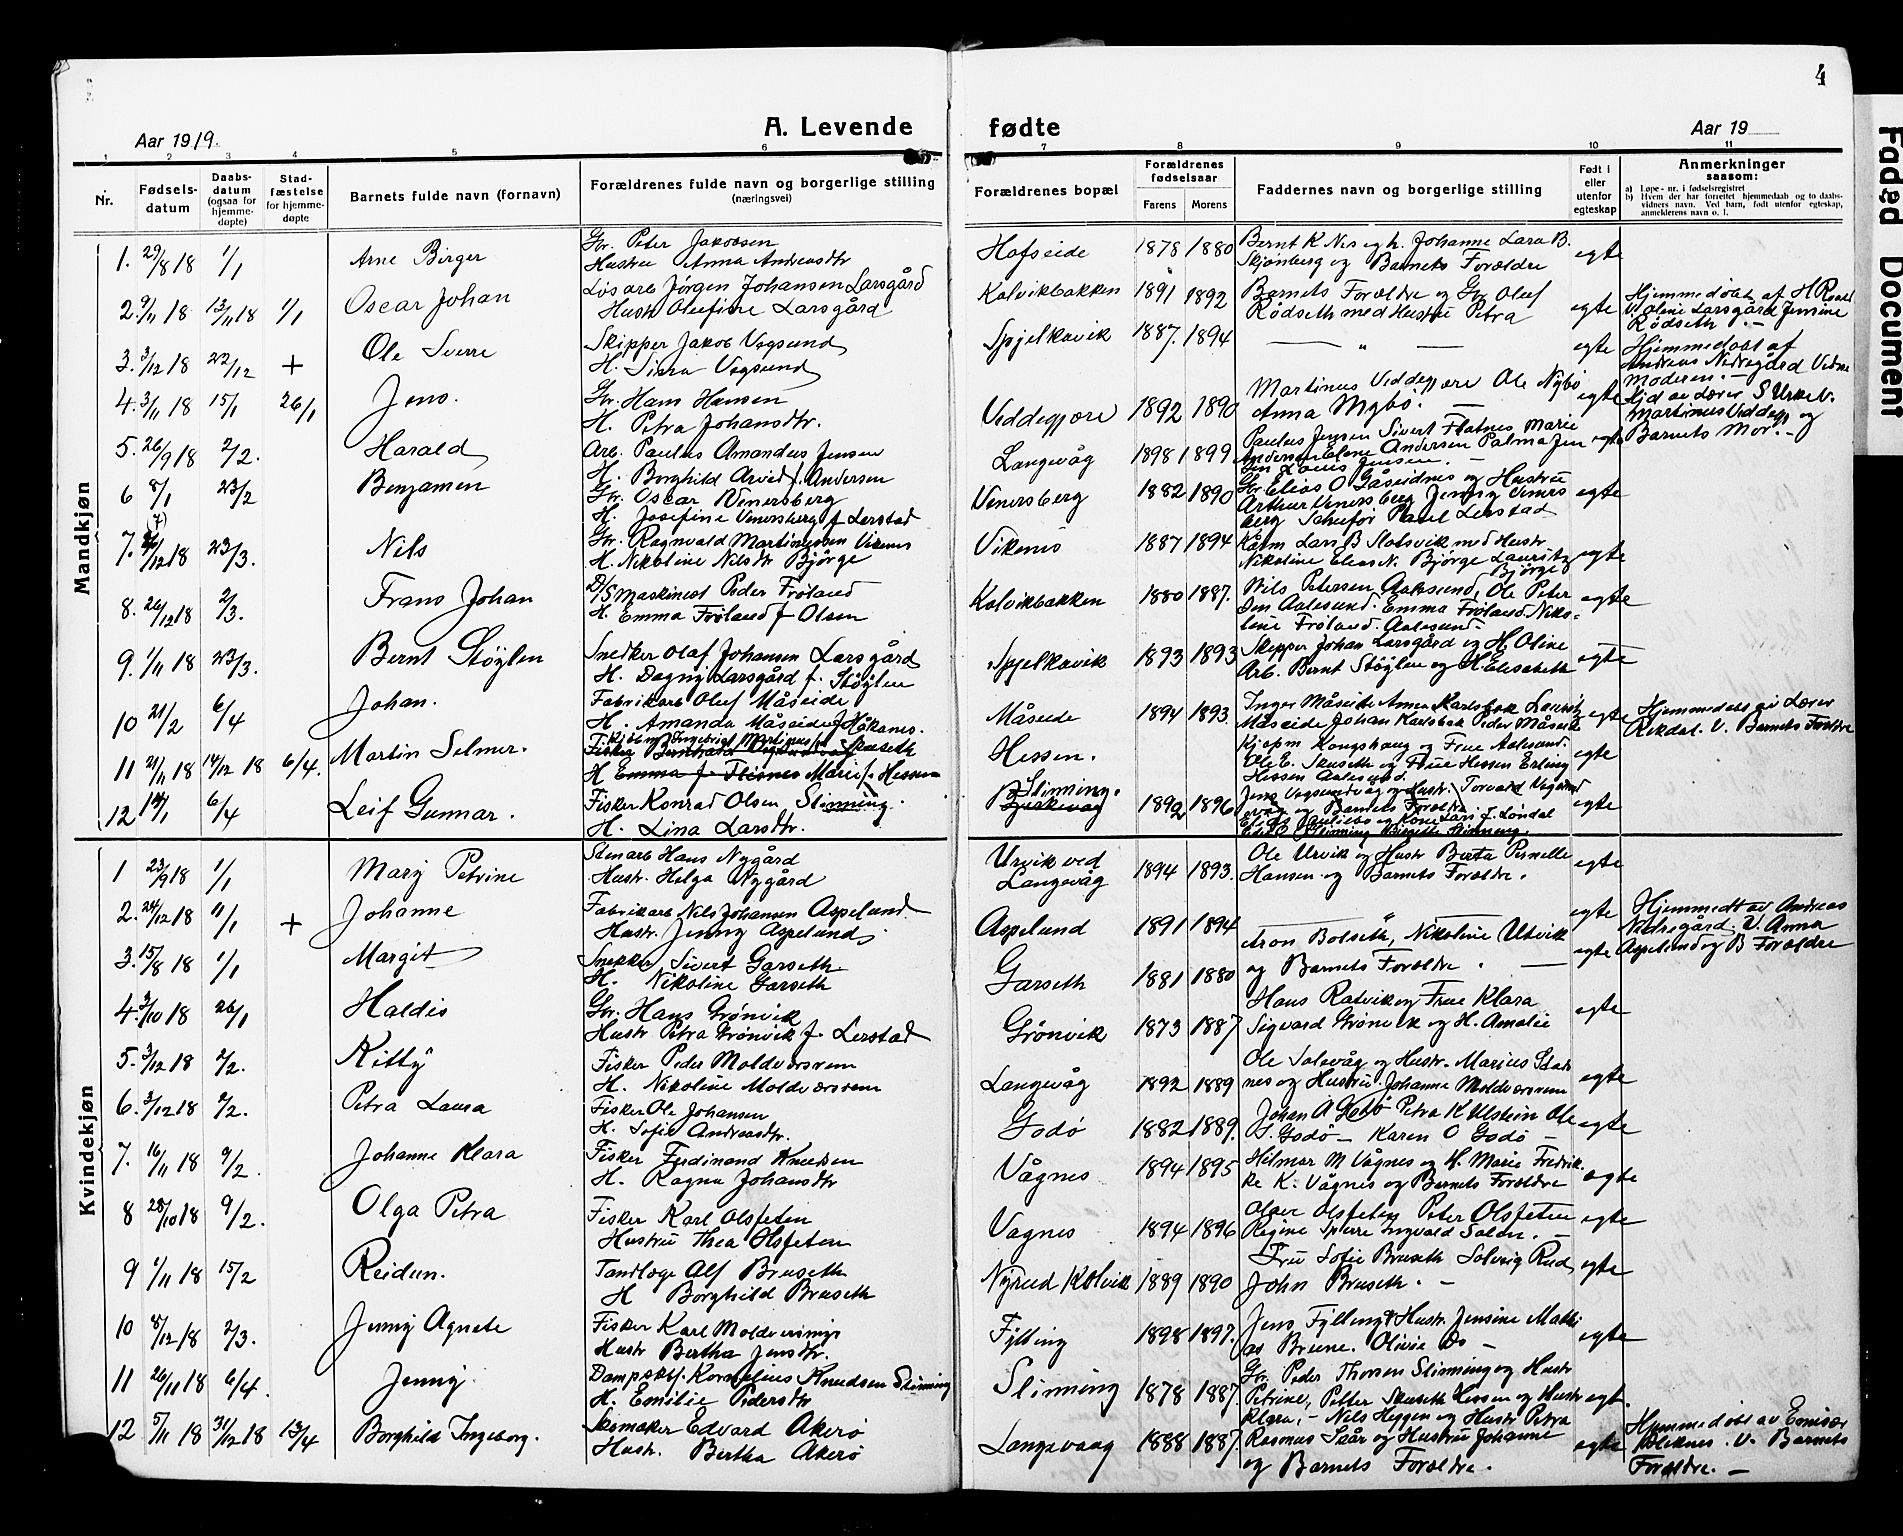 4
Aar 1919.
A. Levende
fødte
Aar 19
1 2 3 4 5 6 7 8 9 10 11
Nr.
Fødsels-datum
Daabs-datum (ogsaa for hjemme-døpte)
Stad-fæstelse for hjemme-døpte
Barnets fulde navn (fornavn)
Forældrenes fulde navn og borgerlige stilling (næringsvei)
Forældrenes bopæl
Forældrenes fødselsaar
Farens Morens
Faddernes navn og borgerlige stilling
Født i eller utenfor egteskap
Anmerkninger saasom:
a) Løpe-nr. i fødselsregistret
b) Hvem der har forrettet hjemmedaab og to daabsvidners navn. Ved barn, født utenfor egteskap, anmelderens navn o. l.
Mandkjøn
1. 29/8 18 1/1 Arne Birger
Gr. Peter Jakobsen
Hustru Anna Andreasdtr
Hofseide 1878 1880
Bernt K Nes og h. Johanne Lara B.
Skjønberg og Barnets Forældre
egte
2. 9/11 18 13/11 18 1/1 Oscar Johan
Løsarb Jørgen Johansen Larsgård
Hustr Olufine Larsgård
Kolvikbakken 1891 1892
Barnets Forældre og Gr Oluf
Rødseth med Hustru Petra
egte
Hjemmedøbt af H
V. Oline Larsgård Jensine
Rødseth. —
3. 3/12 18 22/12 + Ole Sverre
Skipper Jakob Vegsund
H. Sina Vegsund
Spjelkavik 1887. 1894
— „ —
egte
Hjemmedøbt af
Andreas Nedregård Vidne
Moderen. —
4. 3/11 18 15/1 26/1 Jens.
Gr. Hans Hansen
H. Petra Johansdtr.
Veddegjære 1892 1890
Martinus Veddegjære Ole Nybø
Anna Mybø. —
egte
Hjd av Lærer S Urke V.
Martinus Veddegj og
Barnets Mor. —
5. 26/9 18 2/2. Harald
Arb. Paulus Amandus Jensen
H. Borghild Arvid f. Andersen
Langevåg 1898 1899
Paulus Jensen Sivert Flatnes Marie
Andersen Elene Andersen Palma Jen
sen Louis Jensen. —
egte
6 8/1 23/2 Benjamen
Gr. Oscar Venersberg
H. Josefine Venersberg f Lerstad
Venersberg 1882 1890
Gr Elias O Gåseidnes og Hustru
Arthur Venersberg Jenny Veners
berg Schufør Paul Lerstad
egte
7. /12 18 23/3. Nils
Gr. Ragnvald Martinussen Vikenes
H. Nikoline Nilsdtr Bjørge
Vikenes 1887 1894
Kårm Lars B Slotsvik med Hustr
Nikoline Elias N. Bjørge Laurits
Bjørge
egte
8. 26/12 18 2/3. Frans Johan
D/S Maskinist Peder Frøland
H. Emma Frøland f Olsen
Kolvikbakken 1880 1887.
Nils Petersen Aalesund, Ole Peter
sen Aalesund. Emma Frøland Niko-
line Frøland. Aalesund.
egte
9. 1/11 18 23/3. Bernt Støylen
Snedker Olaf Johansen Larsgård
H. Dagny Larsgård f. Støylen
Spjelkavik 1893 1893
Skipper Johan Larsgård og H. Oline
Arb. Bernt Støylen og H Elisabeth
egte
10 21/2 6/4 Johan.
Fabrikarb Oluf Måseide
H. Amanda Måseide f Håkans.
Måseide 1894 1893.
Inger Måseide Anna Karlsbak Laurits
Måseide Johan Karlsbak Peder Måseide
egte
Hjemmedøbt av Lærer
Rekdal. V. Barnets Forældre
11 21/11 18 14/12 18 6/4. Martin Selmer.
Kjøbm Ingebrigt Martinus
Skuseth
H Marie f. Hessen
Hessen.
Kjøpm Kongshaug og Frue Aalesund.
Ole E. Skuseth og Frue Hessen Erling
Hessen Aalesund.
egte
12 14/1 6/4 Leif Gunnar.
Fisker Konrad Olsen Slinning.
H. Lina Larsdtr.
Slinning. 1892 1896
Jens Vegsundvåg og Hustr. Torvald Vegsund
våg og Barnets Forældre
egte
Kvindekjøn
1 23/9 18 1/1 Mary Petrine
Stenarb Hans Nygård
Hustr. Helga Nygård
Urvik ved
Langevåg 1894 1893.
Ole Urvik og Hustr Berta Pernelle
Hansen og Barnets Forældre.
egte
2. 24/12 18 11/1 + Johanne
Fabrikarb Nils Johansen Aspelund
Hustr. Jenny Aspelund.
Aspelund 1891 1894
— „ —
egte
Hjemmedt av Andreas
Nedregård V. Anna
Aspelund og B Forældre
3. 15/8 18 1/1 Margit
Snekker Sivert Garseth
H. Nikoline Garseth
Garseth 1881 1880
Aron Bolseth, Nikoline Utvik
og Barnets Forældre. —
egte
4. 3/10 18 26/1 Haldis
Gr. Hans Grønvik
Hustr Petra Grønvik f Lerstad
Grønvik 1873 1887
Hans Ratvik og Frue Klara
Sigvard Grønvik og H. Amalie
egte
5. 3/12 18 2/2. Kitty
Fisker Peder Moldværsrem
H. Nikoline Moldværsrem
Langevåg 1892 1889
Ole Salevåg og Hustr. Marius Slat
nes og Hustru Johanne Moldværsrem
egte
6. 3/12 18 2/2. Petra Laura
Fisker Ole Johansen
H. Sofie Andreasdtr.
Godø 1882 1889.
Johan A Godø Petra K Ulstein Ole
S. Godø — Karen O Godø —
egte
7. 16/11 18 9/2. Johanne Klara
Fisker Ferdinand Knudsen
H. Ragna Johansdtr
Vågnes 1894 1895
Hilmar M Vågnes og H. Marie Fredrik
ke K. Vågnes og Barnets Forældre
egte
8 28/10 18 9/2. Olga Petra
Fisker Karl Olsfeten
Hustru Thea Olsfeten
Vagnes 1894 1896
Oluer Olsfeten Peter Olsfeten
Regine Sperre Ingvald Salen. —
egte
9 1/11 18 15/2 Reidun.
Tandlæge Alf Bruseth
H Borghild Bruseth
Nyrud Kolvik 1889 1890
Fru Sofie Bruseth Solveig Rud,
John Bruseth. —
egte
10 8/12 18 2/3. Jenny Agnete
Fisker Karl Moldversmyr
Hustr Bertha Jensdtr.
Fylling 1898 1897.
Jens Fylling & Hustr Jensine Matti
as Brune. Olivie Do —
egte
11 26/11 18 6/4. Jenny.
Dampskbf. Kornelius Knudsen Slinning
H. Emilie Pedersdtr
Slinning 1878 1887.
Gr. Peder Thorsen Slinning og Hustr
Petrine, Petter Skuseth Hessen og Hustr
Klara, — Nils Heggen og Hustr Petra
egt.
12 5/11 18 31/12 18 13/4 Borghild Ingeborg.
Skomaker Edvard Akerø
Hustr. Bertha Akerø
Langevaag 1888 1887.
Rasmus Saår og Hustru Johanne
og Barnets Forældre.
egte
Hjemmedøbt av Emisær
Bleknes. V. Barnets
Forældre. —
Faded Document